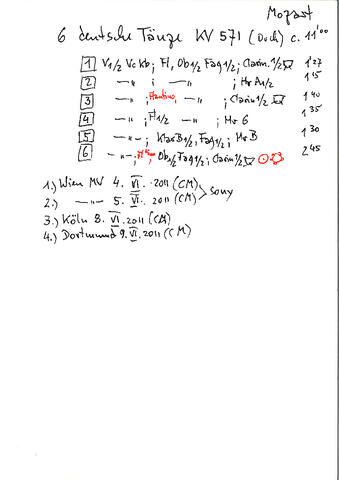 Mozart
6 deutsche Tänze KV 571 (Orch) c. 11'00
1 V1/2 Vc Kb; Fl, Ob1/2 Fag1/2; Clarin.1/2 1'27
2 —"— ; —"— ; Hr A1/2 1'15
3 —"— ; Flautino, —"— ; Clarin 1/2 1'40
4 —"— ; Fl1/2 —"— ; Hr G 1'35
5 —"— ; Klar B1/2, Fag1/2; Hr B 1'30
6 —"— ; Ob1/2 Fag1/2; Clarin 1/2 2'45
1.) Wien MV 4. VI. 2011 (CM)
2.) —"— 5. VI. 2011 (CM) > Sony
3.) Köln 8. VI. 2011 (CM)
4.) Dortmund 9. VI. 2011 (CM)